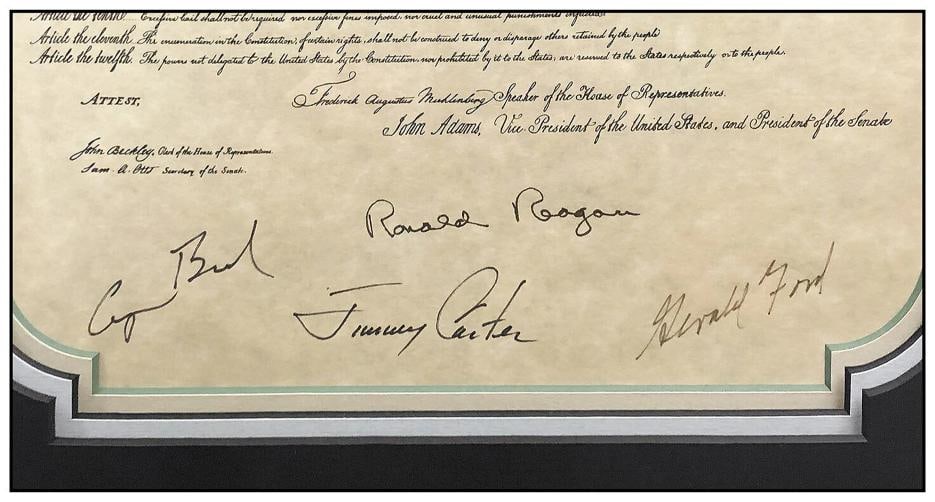 Article the tenth. Excessive bail shall not be required nor excessive fines imposed, nor cruel and unusual punishments inflicted.
Article the eleventh. The enumeration in the Constitution, of certain rights, shall not be construed to deny or disparage others retained by the people
Article the twelfth. The powers not delegated to the United States by the Constitution, nor prohibited by it to the States, are reserved to the States respectively or to the people.
ATTEST,
Frederick Augustus Muhlenberg Speaker of the House of Representatives.
John Adams, Vice President of the United States, and President of the Senate
John Beckley, Clerk of the House of Representatives.
Sam. A. Otis Secretary of the Senate.
Ronald Reagan
George Bush
Jimmy Carter
Gerald Ford